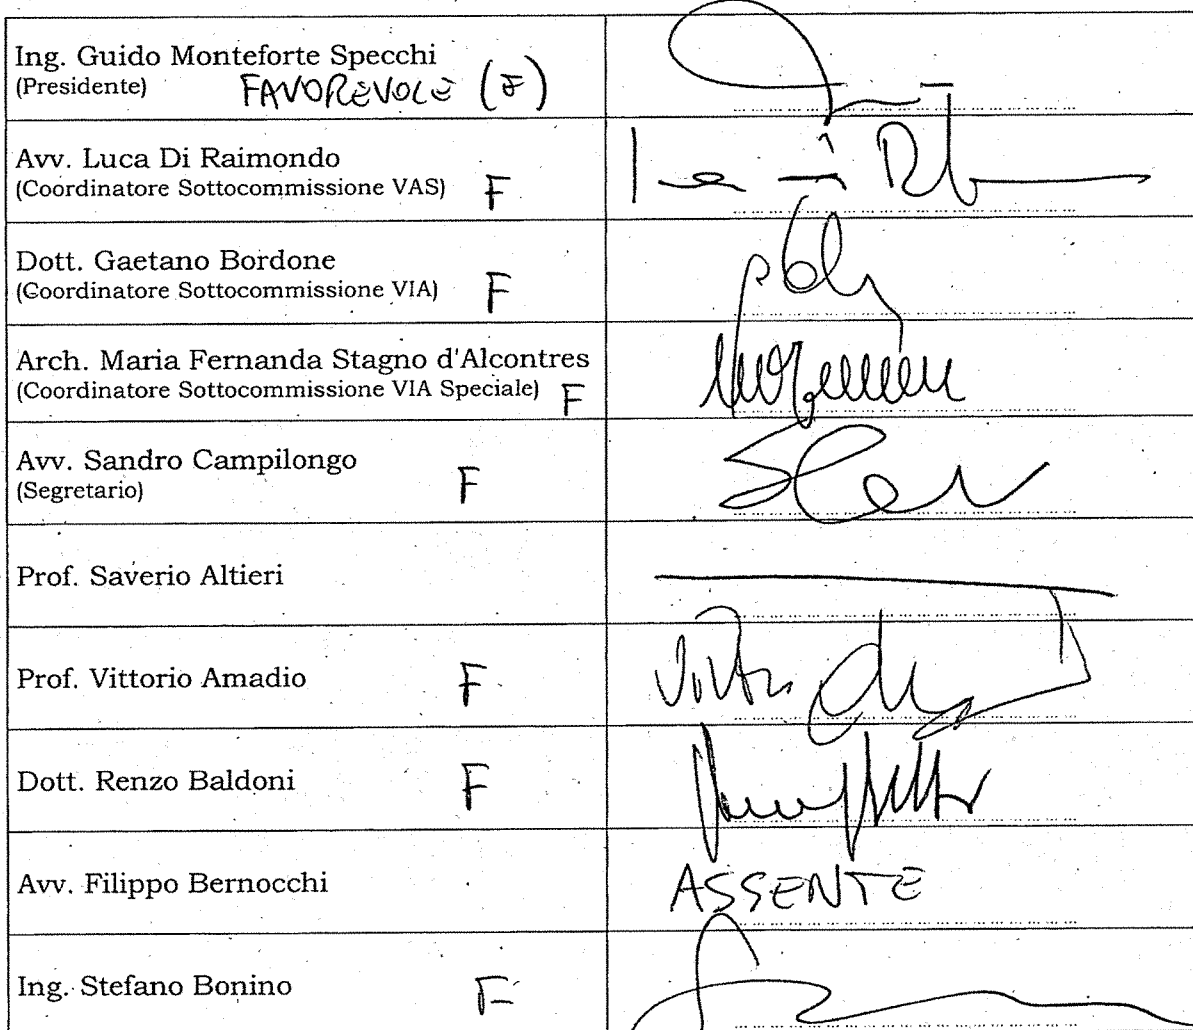 Ing. Guido Monteforte Specchi
(Presidente) FAVOREVOLE (F)
Avv. Luca Di Raimondo
(Coordinatore Sottocommissione VAS) F
Dott. Gaetano Bordone
(Coordinatore Sottocommissione VIA) F
Arch. Maria Fernanda Stagno d'Alcontres
(Coordinatore Sottocommissione VIA Speciale) F
Avv. Sandro Campilongo
(Segretario) F
Prof. Saverio Altieri
Prof. Vittorio Amadio F
Dott. Renzo Baldoni F
Avv. Filippo Bernocchi ASSENTE
Ing. Stefano Bonino F